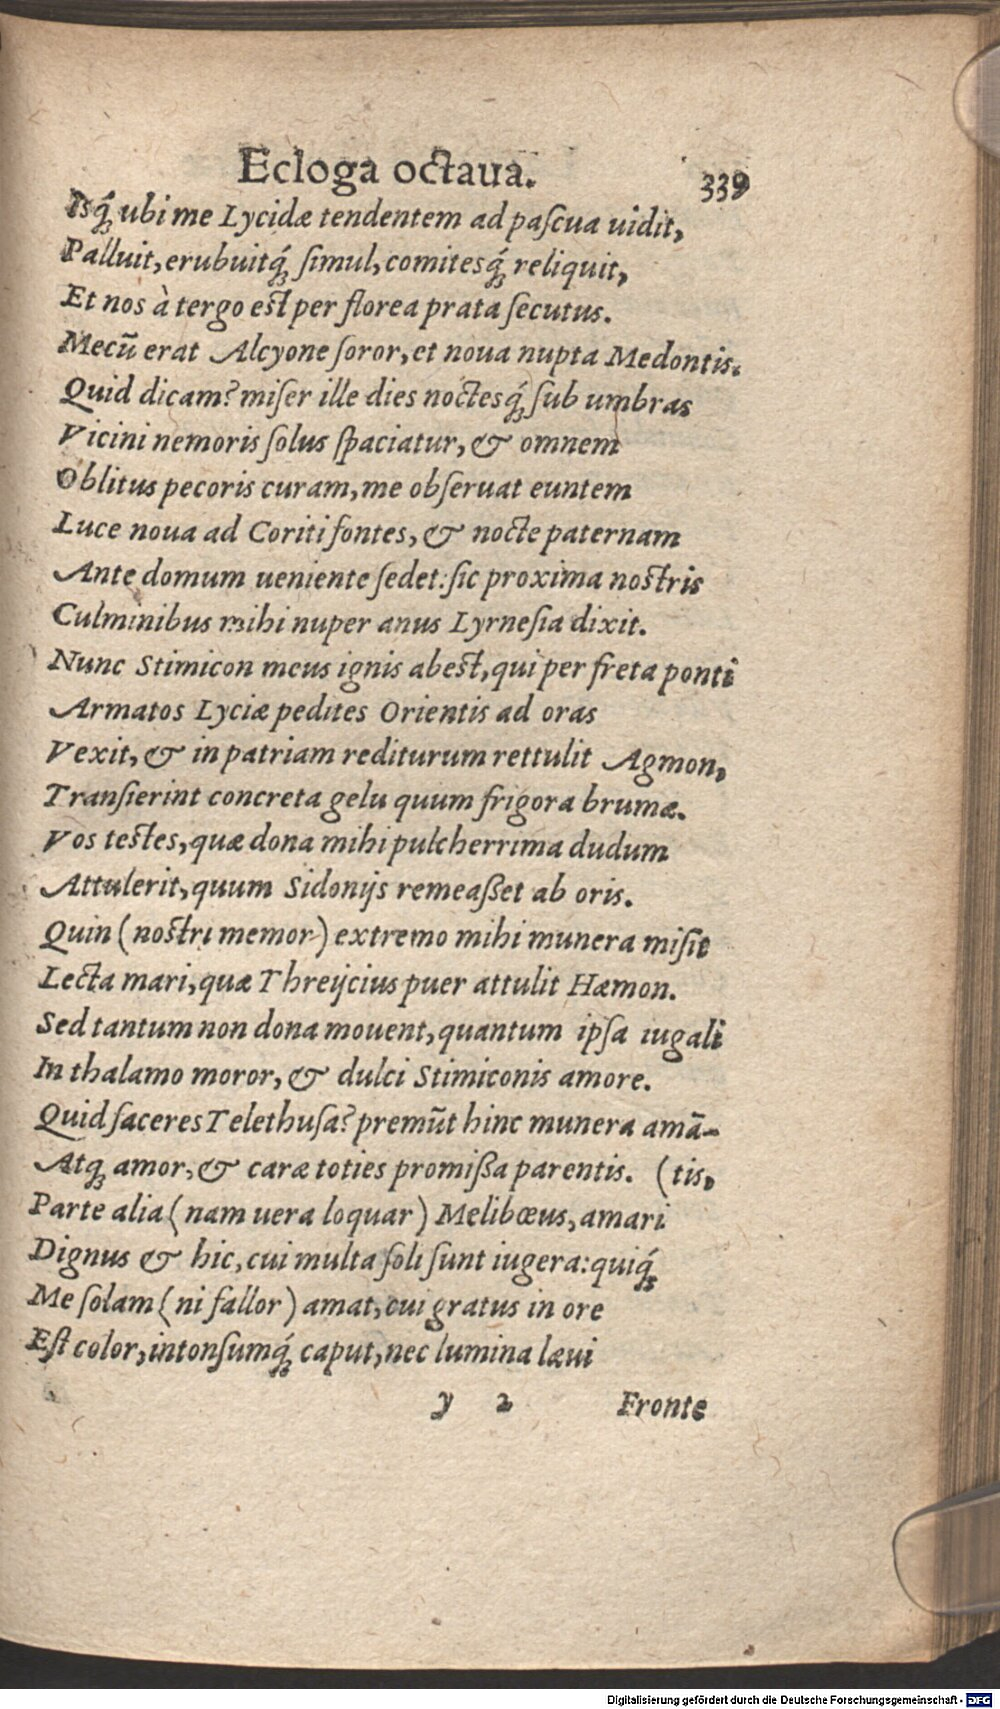 Ecloga octaua. 339
Isq́ꝫ ubi me Lycidæ tendentem ad paſcua uidit,
Palluit, erubuitq́ꝫ ſimul, comitesq́ꝫ reliquit,
Et nos à tergo eſt per florea prata ſecutus.
Mecū erat Alcyone ſoror, et noua nupta Medontis.
Quid dicam? miſer ille dies noctesq́ꝫ ſub umbras
Vicini nemoris ſolus ſpaciatur, & omnem
Oblitus pecoris curam, me obſeruat euntem
Luce noua ad Coriti fontes, & nocte paternam
Ante domum ueniente ſedet: ſic proxima noſtris
Culminibus mihi nuper anus Lyrneſia dixit.
Nunc Stimicon meus ignis abeſt, qui per freta ponti
Armatos Lyciæ pedites Orientis ad oras
Vexit, & in patriam rediturum rettulit Agmon,
Tranſierint concreta gelu quum frigora brumæ.
Vos teſtes, quæ dona mihi pulcherrima dudum
Attulerit, quum Sidonijs remeaßet ab oris.
Quin (noſtri memor) extremo mihi munera miſit
Lecta mari, quæ Threijcius puer attulit Hæmon.
Sed tantum non dona mouent, quantum ipſa iugali
In thalamo moror, & dulci Stimiconis amore.
Quid faceres Telethuſa? premūt hinc munera amā-
Atqꝫ amor, & caræ toties promißa parentis. (tis,
Parte alia (nam uera loquar) Melibœus, amari
Dignus & hic, cui multa ſoli ſunt iugera: quiq́ꝫ
Me ſolam (ni fallor) amat, cui gratus in ore
Eſt color, intonſumq́ꝫ caput, nec lumina læui
y 2 Fronte
Digitalisierung gefördert durch die Deutsche Forschungsgemeinschaft - DFG